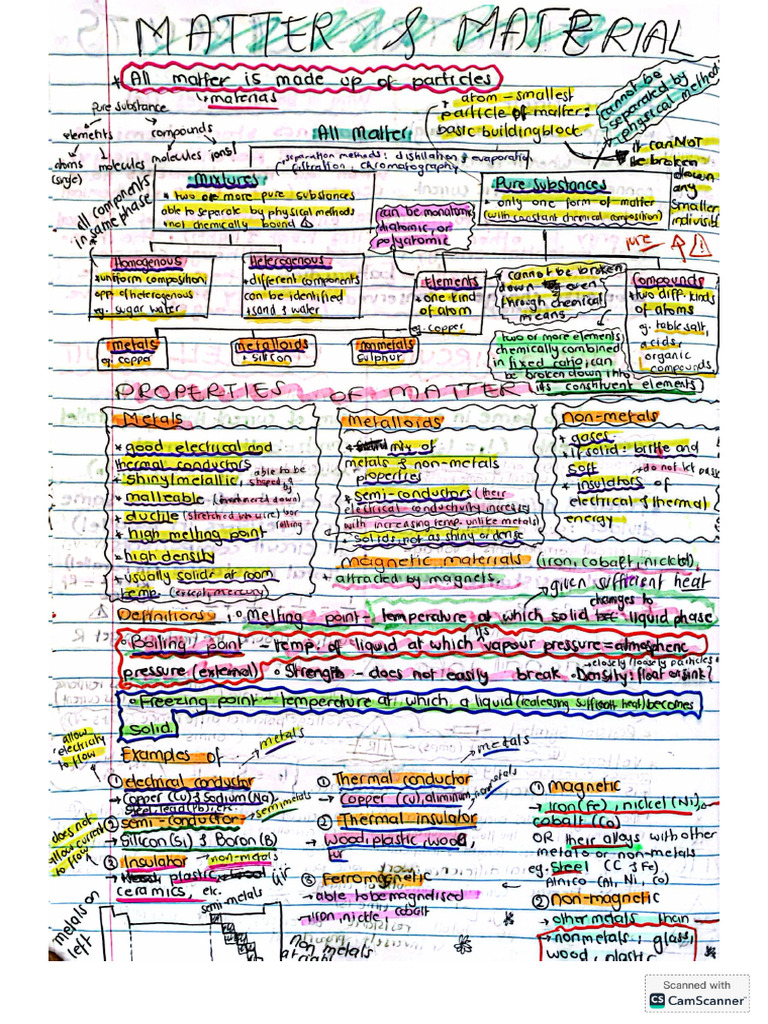 MATTER & MATERIAL
* All matter is made up of particles
↳ materials
Pure substance
elements
compounds
atoms (single)
molecules
molecules
ions!
all components * same phase
All Matter
atom - smallest
particle of matter:
basic building block
cannot be
separated by
physical method
it canNOT
be broken
down
any
smaller
indivisib
separation methods: distillation & evaporation
filtration, chromatography
Mixtures
* two or more pure substances
able to separate by physical methods
* not chemically bound
can be monatomic
diatomic, or
polyatomic
Pure substances
* only one form of matter
(with constant chemical composition)
Homogenous
* uniform composition,
opp. of heterogenous
eg. sugar water
Heterogenous
* different components
can be identified
* sand & water
Elements
* one kind
of atom
eg. copper
* cannot be broken
down even
through chemical
means
Compounds
* two diff. kinds
of atoms
eg. table salt,
acids,
organic
compounds
metals
eg. copper
metalloids
* silicon
nonmetals
sulphur
two or more elements
chemically combined
in fixed ratio, can
be broken down into
its constituent elements
PROPERTIES OF MATTER
Metals
* good electrical and
thermal conductors
* shiny metallic,
* malleable (hammered down)
able to be
shaped by
* ductile (stretched into wire)
rolling
* high melting point
* high density
* usually solid at room
temp. (except mercury)
Metalloids
* mix of
metals & non-metals
properties
* semi-conductors (their
electrical conductivity increases
with increasing temp. unlike metals
* solids, not as shiny or dense
non-metals
* gases
* if solid: brittle and
soft
* do not let pass
* insulators of
electrical & thermal
energy
magnetic materials (iron, cobalt, nickel),
* attracted by magnets.
given sufficient heat
changes to
Definitions: • melting point - temperature at which solid liquid phase
• Boiling point - temp. of liquid at which its vapour pressure = atmospheric
pressure (external) • Strength - does not easily break • Density: float or sink?
closely/loosely particles
• Freezing point - temperature at which a liquid (releasing sufficient heat) becomes
solid
Examples of
allow
electricity
to flow
→ metals
① electrical conductor
→ Copper (Cu) & Sodium (Na)
Steel, lead (Pb), etc
② semi-conductor
semimetals
→ Silicon (Si) & Boron (B)
does not
allow current
to flow
③ Insulator
→ non-metals
→ plastic, air
ceramics, etc.
→ metals
① Thermal conductor
→ Copper (Cu), aluminium,
② Thermal insulator
→ Wood, plastic,
fur
③ Ferromagnetic
→ able to be magnetised
→ iron, nickle, cobalt
① magnetic
→ iron (Fe), nickel (Ni),
cobalt (Co)
OR their alloys with other
metals or non-metals
eg. Steel (C & Fe)
Alnico (Al, Ni, Co)
② non-magnetic
→ other metals than
→ nonmetals: glass,
wood, plastic
metals on
left
semi-metals
non metals
Scanned with
CS CamScanner